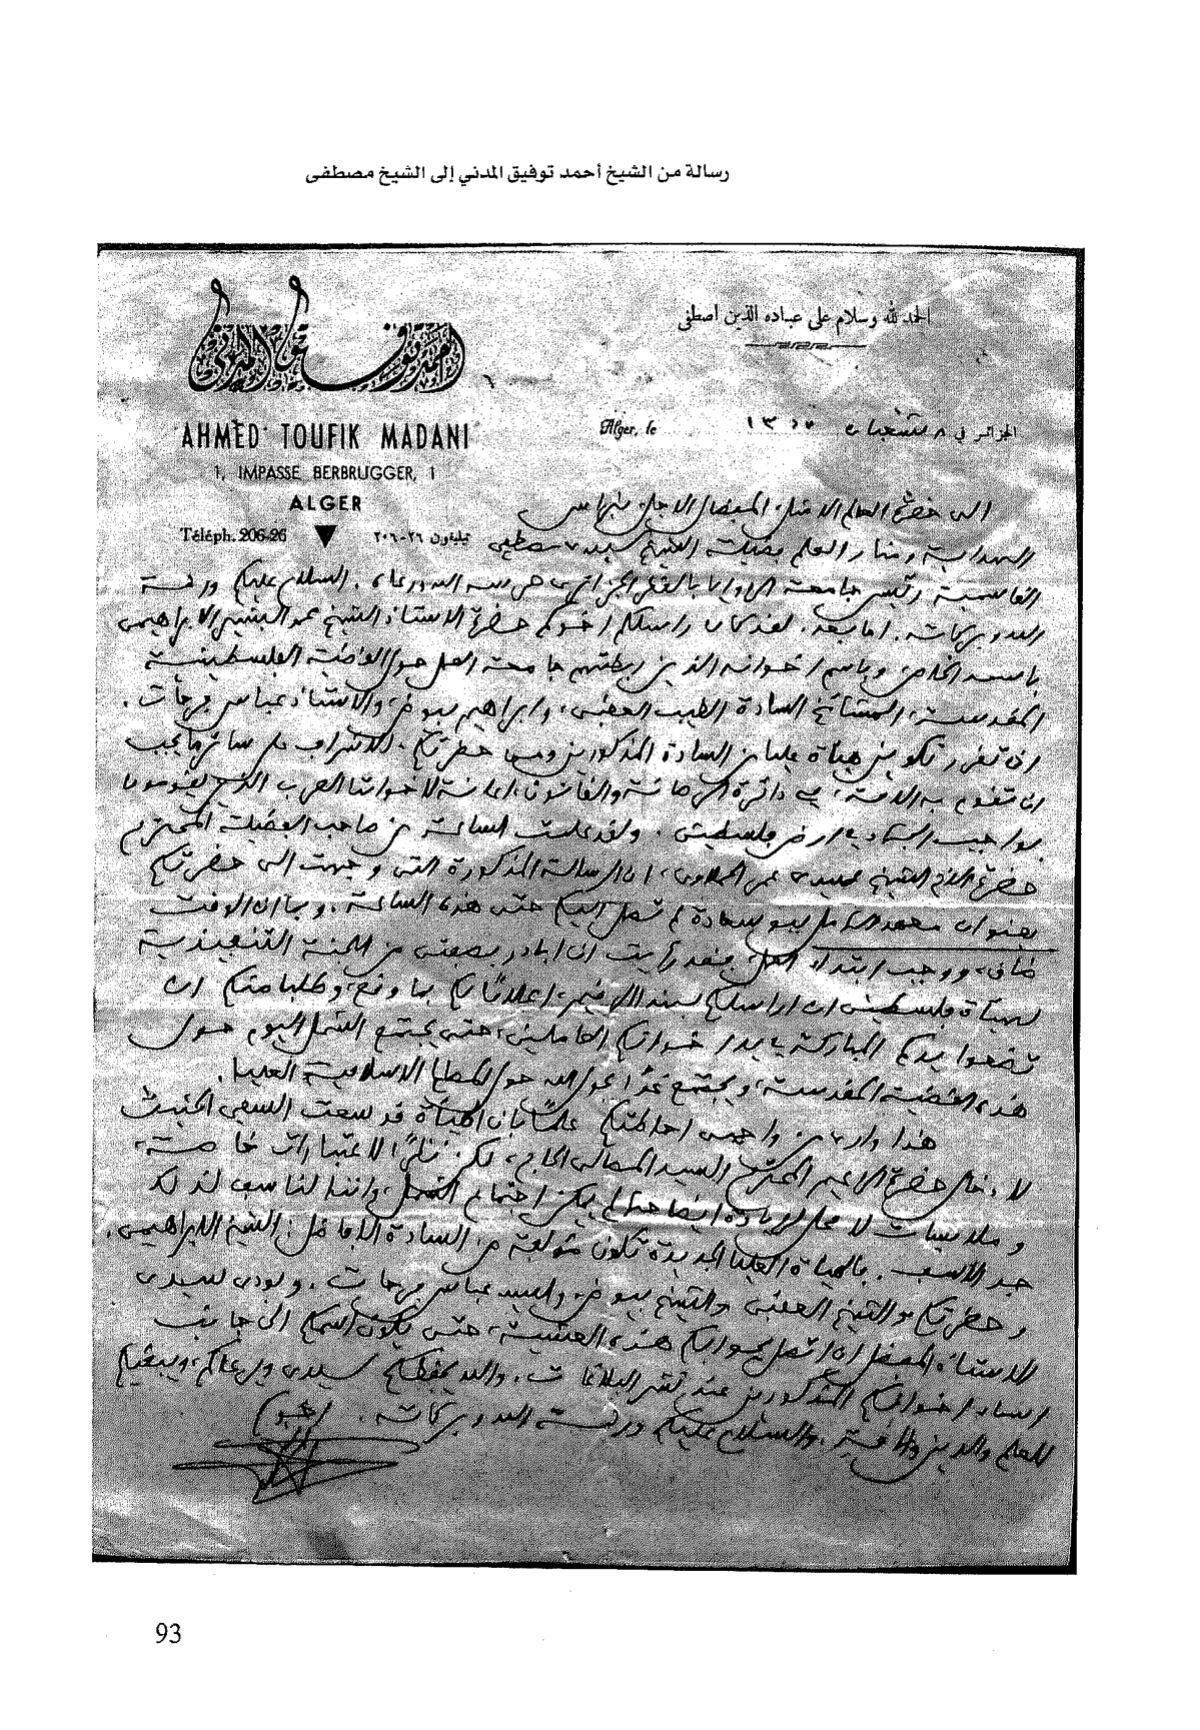 رسالة من الشيخ أحمد توفيق المدني إلى الشيخ مصطفى
الحمد لله وسلام على عباده الذين اصطفى
أحمد توفيق المدني
AHMED TOUFIK MADANI
1, IMPASSE BERBRUGGER, 1
ALGER
Téléph. 206-26
تيليفون ٢٦-٢٠٦
Alger, le
الجزائر في ٨ شعبان
الى حضرة العالم الامثل، المفضال الاجل، نبراس
الهداية ومنار العلم فضيلة الشيخ سيدي مصطفى
القاسمية رئيس جامعة الزوايا بالقطر الجزائري حرسه الله ورعاه. السلام عليكم ورحمة
الله وبركاته. اما بعد، لقد كان راسلكم اخوكم حضرة الاستاذ الشيخ محمد البشير الابراهيمي
باسمه الخاص وباسم اخوانه الذين ربطتهم جامعة العمل حول القضية الفلسطينية
المقدسة، المشائخ السادة الطيب العقبي، وابراهيم بيوض، والاستاذ عباس فرحات.
ان تقرر تكوين هيأة عليا من السادة المذكورين ومن حضرتكم، للاشراف على سائر ما يجب
ان تقوم به الامة، في دائرة والقانون، اعانة لاخواننا العرب الذين يقومون
بواجب الجهاد في ارض فلسطين. ولقد علمت الساعة من صاحب الفضيلة المحترم
حضرة الاخ الشيخ سيدي عمر الحملاوي، ان الرسالة المذكورة التي وجهت الى حضرتكم
بعنوان معهد الهامل ببوسعادة لم تصل اليكم حتى هذه الساعة. وبما ان الوقت
ضاق، ووجب ابتداء العمل، فقد رأيت ان ابادر بصفتي من اللجنة التنفيذية
لهيأة فلسطين ان اراسلكم اعلاما لكم بما وقع، وطلبا منكم ان
تضعوا يدكم المباركة بايدي اخوانكم العاملين، حتى يجتمع الشمل اليوم حول
هذه القضية المقدسة، ويجتمع غدا بحول الله حول المصالح الاسلامية العليا.
هذا وارى من واجبي احاطتكم علما بان الهيأة قد سعت السعي الحثيث
لادخال حضرة الزعيم المحترم السيد المصالي الحاج، لكن نظرا لاعتبارات خاصة،
وملابسات لا محل لزيادة ايضاحها لم يمكن اجتماع الشمل، واننا لنأسف لذلك
جد الأسف. فالهيأة العليا الجديدة تكون مؤلفة من السادة الافاضل: الشيخ الابراهيمي،
وحضرتكم والشيخ العقبي والشيخ بيوض والسيد عباس فرحات. وبودي لسيدي
الاستاذ المفضل ان اتصل بجوابكم هذه العشية، حتى يكون اسمكم الى جانب
اسماء اخوانكم المذكورين عند نشر البلاغات. والله يحفظكم سيدي ويرعاكم، ويبقيكم
للعلم والدين والامة. والسلام عليكم ورحمة الله وبركاته. اخوكم
93